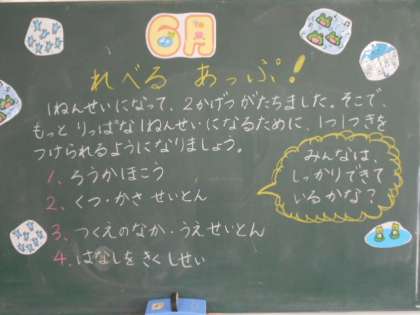 6月
れべる あっぷ!
1ねんせいになって、2かげつがたちました。そこで、
もっと りっぱな1ねんせいになるために、1つ1つきを
つけられるようになりましょう。
1. ろうかほこう
2. くつ・かさ せいとん
3. つくえのなか・うえせいとん
4. はなしをきくしせい
みんなは、
しっかりできて
いるかな?